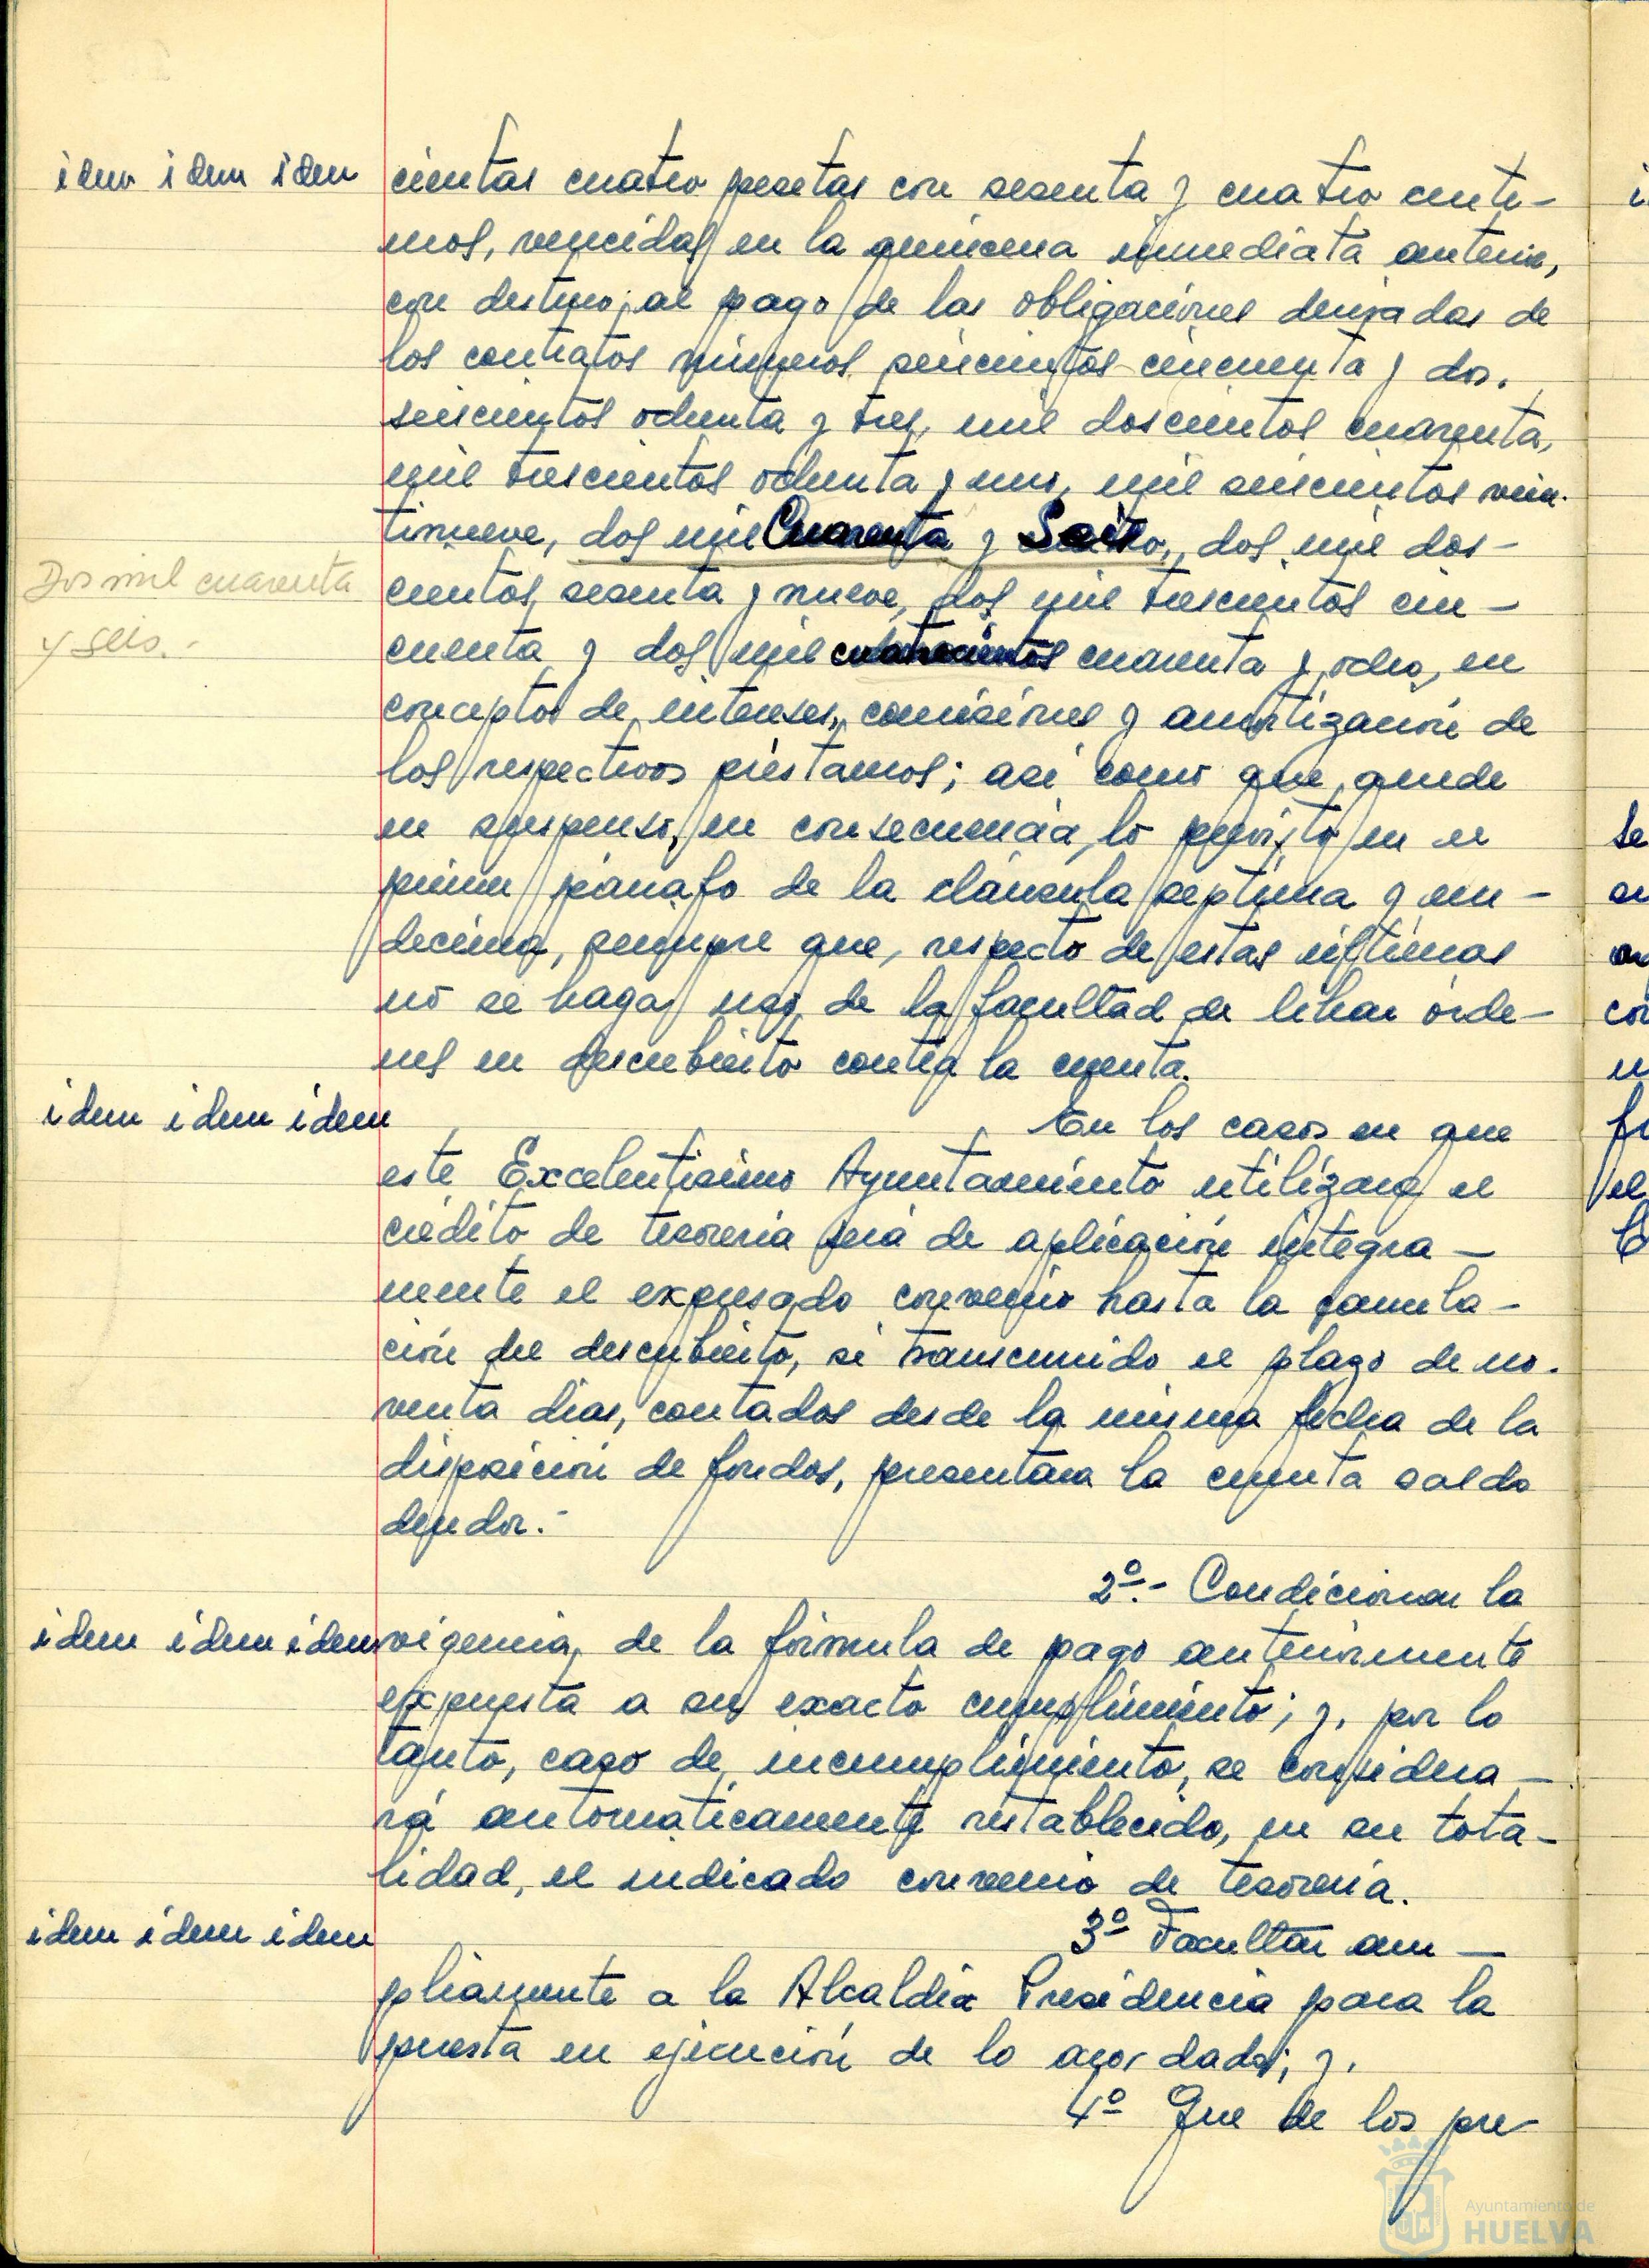 idem idem idem
cientas cuatro pesetas con sesenta y cuatro cénti-
mos, vencidas en la quincena inmediata anterior,
con destino, al pago de las obligaciones derivadas de
los contratos números seiscientos cincuenta y dos,
seiscientos ochenta y tres, mil doscientos cuarenta,
mil trescientos ochenta y uno, mil seiscientos vein-
tinueve, dos mil Cuarenta y Seis, dos mil dos-
Dos mil cuarenta
y seis.-
cientos, sesenta y nueve, dos mil trescientos cin-
cuenta y dos mil cuatrocientos cuarenta y ocho, en
conceptos de, intereses, comisiones y amortización de
los respectivos préstamos; así como que quede
en suspenso, en consecuencia, lo previsto en el
primer párrafo de la cláusula septima y un-
decima, siempre que, respecto de estas últimas
no se haga uso, de la facultad de librar órde-
nes en descubierto contra la cuenta.
idem idem idem
En los casos en que
este Excelentisimo Ayuntamiento utilizara el
crédito de tesoreria será de aplicación integra-
mente el expresado convenio hasta la cancela-
ción del descubierto, si transcurrido el plazo de no-
venta dias, contados desde la misma fecha de la
disposición de fondos, presentara la cuenta saldo
deudor.-
2º.- Condicionar la
idem idem idem
vigencia, de la fórmula de pago anteriormente
expuesta a su exacto cumplimiento; y, por lo
tanto, caso de, incumplimiento, se considera-
rá automáticamente restablecido, en su tota-
lidad, el indicado convenio de tesorería.
idem idem idem
3º Facultar am-
pliamente a la Alcaldía Presidencia para la
puesta en ejecución de lo acordado; y,
4º Que de los pre-
Ayuntamiento de
HUELVA